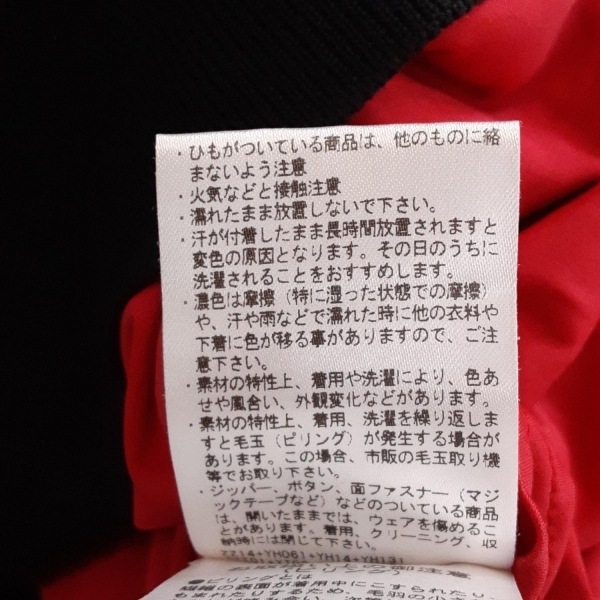 ・ひもがついている商品は、他のものに絡
まないよう注意
・火気などと接触注意
・濡れたまま放置しないで下さい。
・汗が付着したまま長時間放置されますと
変色の原因となります。その日のうちに
洗濯されることをおすすめします。
・濃色は摩擦（特に湿った状態での摩擦）
や、汗や雨などで濡れた時に他の衣料や
下着に色が移る事がありますので、ご注
意下さい。
・素材の特性上、着用や洗濯により、色あ
せや風合い、外観変化などがあります。
・素材の特性上、着用、洗濯を繰り返しま
すと毛玉（ピリング）が発生する場合が
あります。この場合、市販の毛玉取り機
等でお取り下さい。
・ジッパー、ボタン、面ファスナー（マジ
ックテープなど）などのついている商品
は、開いたままでは、ウェアを傷めるこ
とがあります。着用、クリーニング、収
納時には閉じて下さい。
YZ14+YH061+YH14+YH131
●ピリングとは
繊維の表面が着用中にこすられたり、